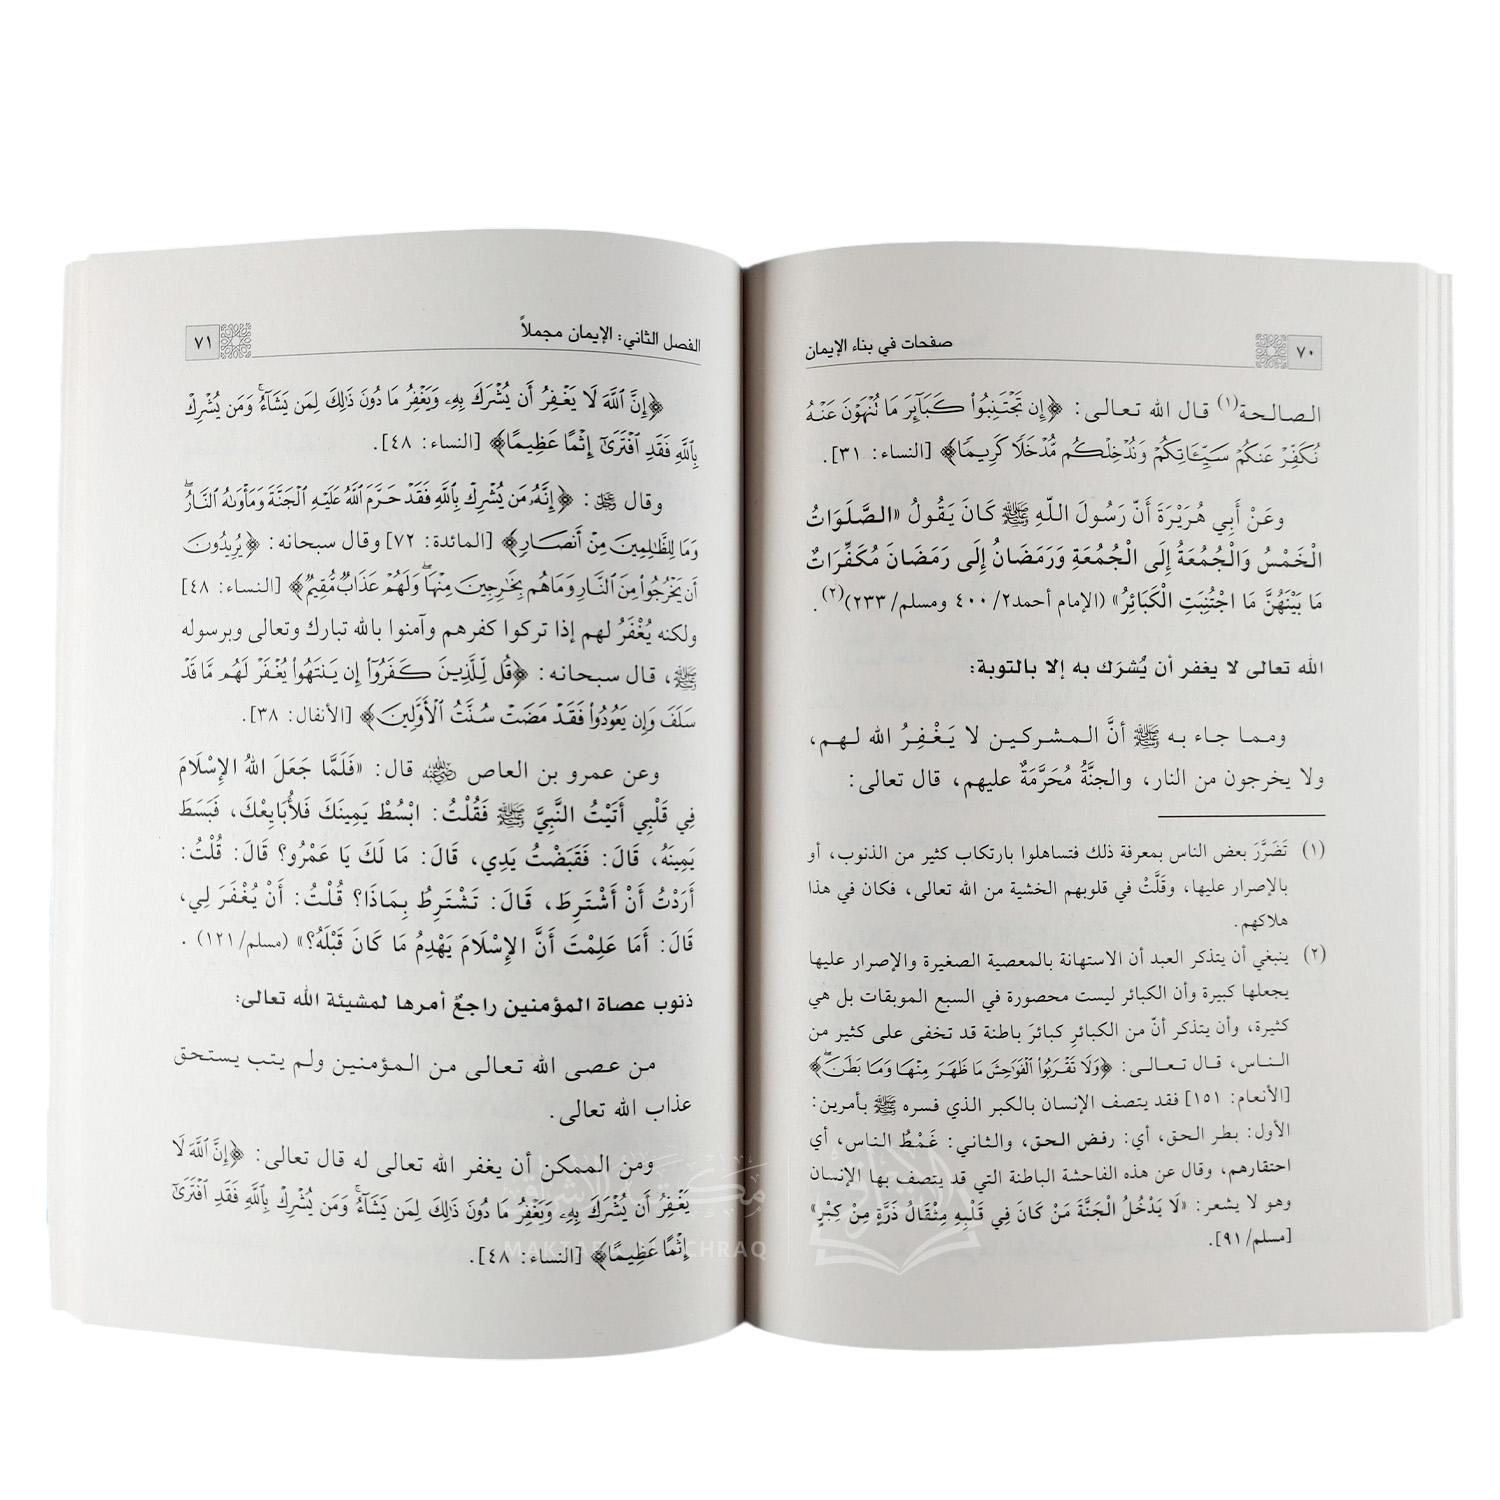 ٧٠ صفحات في بناء الإيمان
الصالحة(١) قال الله تعالى: ﴿إِن تَجْتَنِبُوا۟ كَبَآئِرَ مَا تُنْهَوْنَ عَنْهُ
نُكَفِّرْ عَنكُمْ سَيِّـَٔاتِكُمْ وَنُدْخِلْكُم مُّدْخَلًا كَرِيمًا﴾ [النساء: ٣١].
وعَنْ أَبِي هُرَيْرَةَ أَنّ رَسُولَ اللّهِ ﷺ كَانَ يَقُولُ «الصَّلَوَاتُ
الْخَمْسُ وَالْجُمُعَةُ إِلَى الْجُمُعَةِ وَرَمَضَانُ إِلَى رَمَضَانَ مُكَفِّرَاتٌ
مَا بَيْنَهُنَّ مَا اجْتُنِبَتِ الْكَبَائِرُ» (الإمام أحمد٢/ ٤٠٠ ومسلم/ ٢٣٣)(٢).
الله تعالى لا يغفر أن يُشرَك به إلا بالتوبة:
ومما جاء به ﷺ أنَّ المشركين لا يَغْفِرُ الله لهم،
ولا يخرجون من النار، والجنَّةُ مُحَرَّمَةٌ عليهم، قال تعالى:
(١) تَضَرَّرَ بعض الناس بمعرفة ذلك فتساهلوا بارتكاب كثير من الذنوب، أو
بالإصرار عليها، وقَلَّتْ في قلوبهم الخشية من الله تعالى، فكان في هذا
هلاكهم.
(٢) ينبغي أن يتذكر العبد أن الاستهانة بالمعصية الصغيرة والإصرار عليها
يجعلها كبيرة وأن الكبائر ليست محصورة في السبع الموبقات بل هي
كثيرة، وأن يتذكر أنّ من الكبائرِ كبائرَ باطنة قد تخفى على كثير من
الناس، قال تعالى: ﴿وَلَا تَقْرَبُوا۟ الْفَوَٰحِشَ مَا ظَهَرَ مِنْهَا وَمَا بَطَنَ﴾
[الأنعام: ١٥١] فقد يتصف الإنسان بالكبر الذي فسره ﷺ بأمرين:
الأول: بطر الحق، أي: رفض الحق، والثاني: غَمْطُ الناس، أي
احتقارهم، وقال عن هذه الفاحشة الباطنة التي قد يتصف بها الإنسان
وهو لا يشعر: «لَا يَدْخُلُ الْجَنَّةَ مَنْ كَانَ فِي قَلْبِهِ مِثْقَالُ ذَرَّةٍ مِنْ كِبْرٍ»
[مسلم/ ٩١].
الفصل الثاني: الإيمان مجملاً ٧١
﴿إِنَّ ٱللَّهَ لَا يَغْفِرُ أَن يُشْرَكَ بِهِۦ وَيَغْفِرُ مَا دُونَ ذَٰلِكَ لِمَن يَشَآءُ ۚ وَمَن يُشْرِكْ
بِٱللَّهِ فَقَدِ ٱفْتَرَىٰٓ إِثْمًا عَظِيمًا﴾ [النساء: ٤٨].
وقال ﷻ: ﴿إِنَّهُۥ مَن يُشْرِكْ بِٱللَّهِ فَقَدْ حَرَّمَ ٱللَّهُ عَلَيْهِ ٱلْجَنَّةَ وَمَأْوَىٰهُ ٱلنَّارُ ۖ
وَمَا لِلظَّـٰلِمِينَ مِنْ أَنصَارٍ﴾ [المائدة: ٧٢] وقال سبحانه: ﴿يُرِيدُونَ
أَن يَخْرُجُوا۟ مِنَ ٱلنَّارِ وَمَا هُم بِخَـٰرِجِينَ مِنْهَا ۖ وَلَهُمْ عَذَابٌ مُّقِيمٌ﴾ [النساء: ٤٨]
ولكنه يُغْفَرُ لهم إذا تركوا كفرهم وآمنوا بالله تبارك وتعالى وبرسوله
ﷺ، قال سبحانه: ﴿قُل لِّلَّذِينَ كَفَرُوٓا۟ إِن يَنتَهُوا۟ يُغْفَرْ لَهُم مَّا قَدْ
سَلَفَ وَإِن يَعُودُوا۟ فَقَدْ مَضَتْ سُنَّتُ ٱلْأَوَّلِينَ﴾ [الأنفال: ٣٨].
وعن عمرو بن العاص رضي الله عنه قال: «فَلَمَّا جَعَلَ اللهُ الإِسْلَامَ
فِي قَلْبِي أَتَيْتُ النَّبِيَّ ﷺ فَقُلْتُ: ابْسُطْ يَمِينَكَ فَلأُبَايِعْكَ، فَبَسَطَ
يَمِينَهُ، قَالَ: فَقَبَضْتُ يَدِي، قَالَ: مَا لَكَ يَا عَمْرُو؟ قَالَ: قُلْتُ:
أَرَدْتُ أَنْ أَشْتَرِطَ، قَالَ: تَشْتَرِطُ بِمَاذَا؟ قُلْتُ: أَنْ يُغْفَرَ لِي،
قَالَ: أَمَا عَلِمْتَ أَنَّ الإِسْلَامَ يَهْدِمُ مَا كَانَ قَبْلَهُ؟» (مسلم/ ١٢١).
ذنوب عصاة المؤمنين راجعٌ أمرها لمشيئة الله تعالى:
من عصى الله تعالى من المؤمنين ولم يتب يستحق
عذاب الله تعالى.
ومن الممكن أن يغفر الله تعالى له قال تعالى: ﴿إِنَّ ٱللَّهَ لَا
يَغْفِرُ أَن يُشْرَكَ بِهِۦ وَيَغْفِرُ مَا دُونَ ذَٰلِكَ لِمَن يَشَآءُ ۚ وَمَن يُشْرِكْ بِٱللَّهِ فَقَدِ ٱفْتَرَىٰٓ
إِثْمًا عَظِيمًا﴾ [النساء: ٤٨].
مكتبة الإشراق